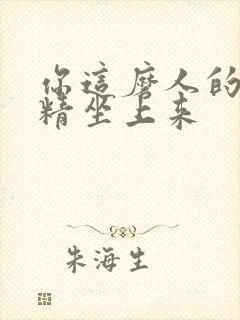 你這磨人的
精坐上来
朱海生